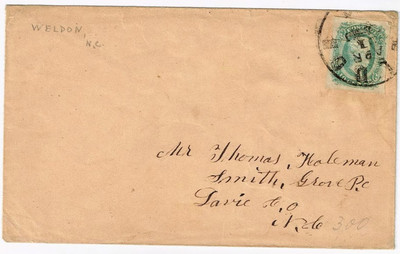 WELDON,
N.C.
Mr Thomas, Holeman
Smith, Grove P.o
Davie Co
N. Co 300